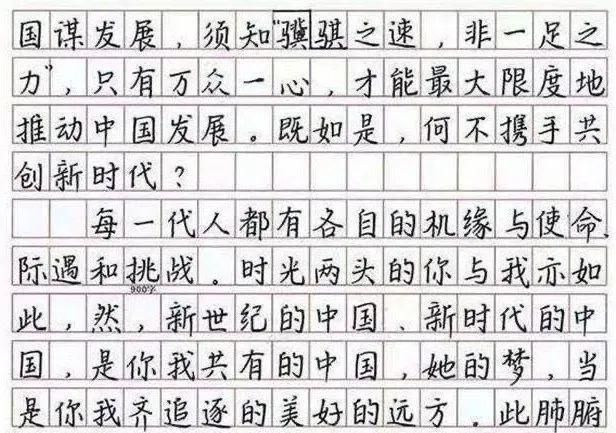 国谋发展，须知“骥骐之速，非一足之
力”，只有万众一心，才能最大限度地
推动中国发展。既如是，何不携手共
创新时代？
每一代人都有各自的机缘与使命、
际遇和挑战。时光两头的你与我亦如
900字
此，然，新世纪的中国、新时代的中
国，是你我共有的中国，她的梦，当
是你我齐追逐的美好的远方。此肺腑